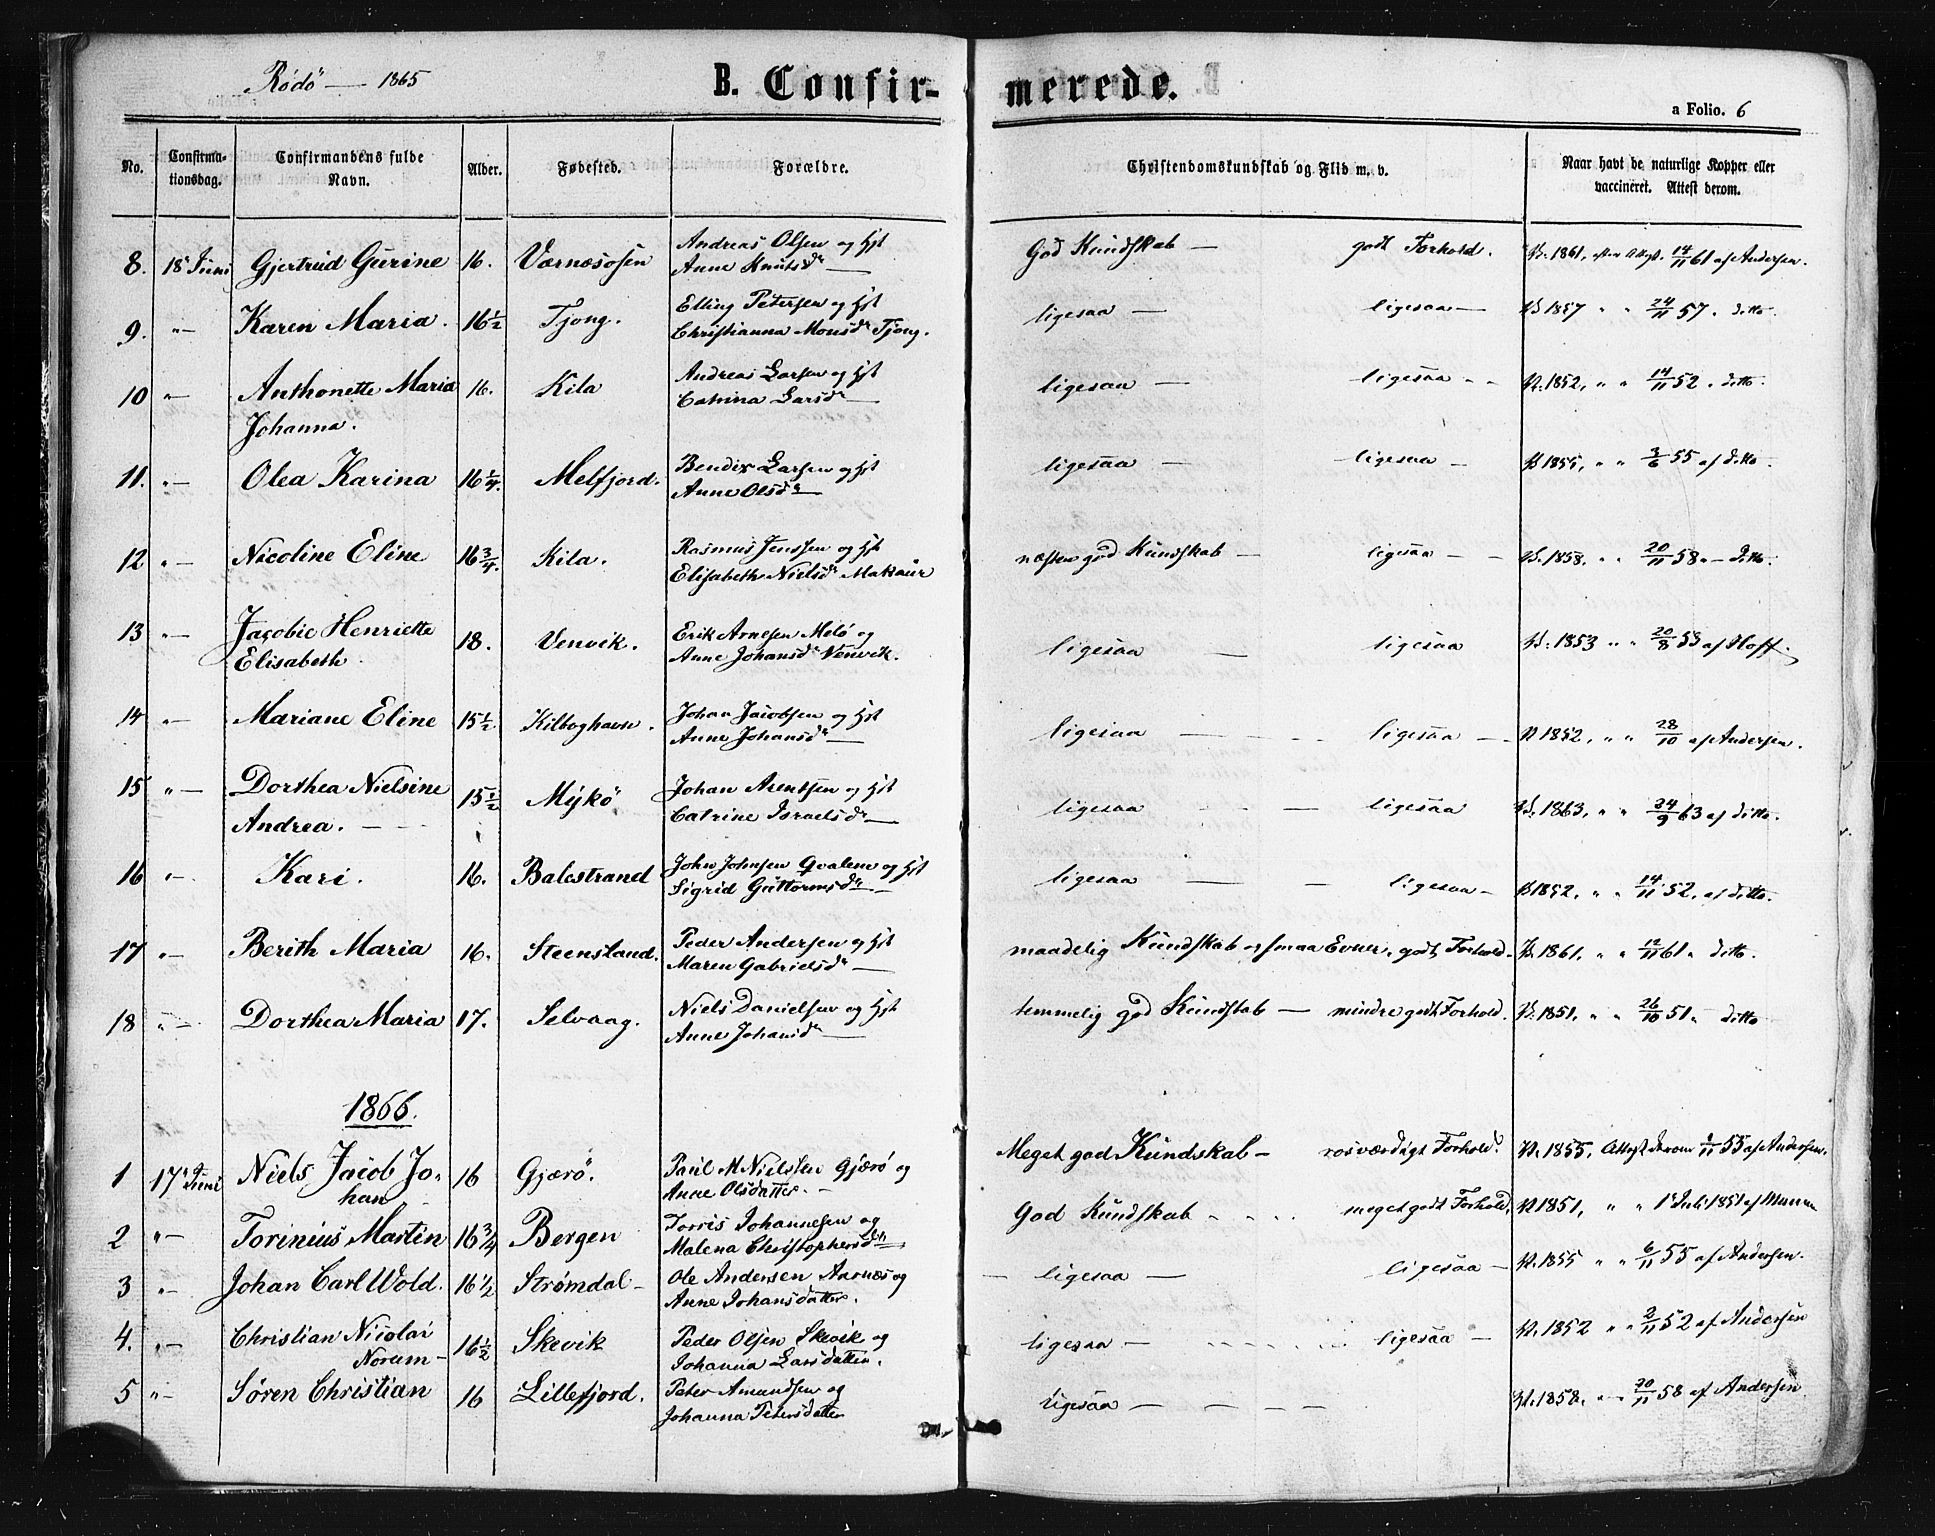 Rödö — 1865
B. Confirmerede.
a Folio. 6
No. Confirmationsdag. Confirmandens fulde Navn. Alder. Fødested. Forældre. Christendomskundskab og Flid m. v. Naar havt de naturlige Kopper eller vaccineret. Attest derom.
8. 18' Juni Gjertrud Gurine 16. Værnæsosen Andreas Olsen og Hst Anne Knutsdr — God Kundskab — godt Forhold. V. 1861, efter Attest. 14/11 61 af Andersen.
9. "— Karen Maria. 16 1/2 Tjong. Elling Petersen og Hst Christianna Monsdr Tjong. ligesaa — ligesaa — V 1857 " " 24/11 57 " ditto.
10 "— Anthonette Maria Johanna. 16. Kila Andreas Larsen og Hst Catrina Larsdr — ligesaa — ligesaa - - V. 1852, " " 14/11 52 " ditto.
11. "— Olea Karina 16 1/4. Melfjord. Bendix Larsen og Hst Anne Olsdr — ligesaa — ligesaa — V 1855, " " 3/6 55 af ditto.
12 "— Nicoline Eline 16 3/4. Kila. Rasmus Jenssen og Hst Elisabeth Nielsdr Makaur næsten god Kundskab — ligesaa - - V. 1858. " " 20/11 58 " — ditto.
13 "— Jacobie Henriette Elisabeth 18. Venvik. Erik Arnesen Melö og Anne Johansdr Venvik. ligesaa — ligesaa V. 1853 " " 20/8 53 af Hoff.
14 "— Mariane Eline 15 1/2. Kilboghavn. Johan Jacobsen og Hst Anne Johansdr — ligesaa — ligesaa — V 1852, " " 28/10 af Andersen.
15 "— Dorthea Nielsine Andrea. — 15 1/2 Mykö Johan Arentsen og Hst Catrine Israelsdr — ligesaa — ligesaa V. 1863, " " 24/9 63 af ditto.
16 "— Kari. 16. Balestrand John Johnsen Qvalem og Hst Sigrid Guttormsdr — ligesaa — ligesaa — V 1852. " " 14/11 52, af ditto.
17 "— Berith Maria 16. Steensland. Peder Andersen og Hst Maren Gabrielsdr — maadelig Kundskab og smaa Evner, godt Forhold. V. 1861, " " 12/11 61 " ditto.
18 "— Dorthea Maria 17. Selvaag. Niels Danielsen og Hst Anne Johansdr — temmelig god Kundskab — mindre godt Forhold. V. 1851, " " 26/10 51 " ditto
1866.
1 17' Juni Niels Jacob Johan 16 Gjærö. Paul M Nielsen Gjærö og Anne Olsdatter. — Meget god Kundskab — rosværdigt Forhold. V. 1855, Attest derom 55 af Andersen.
2 "— Torinius Martin 16 3/4 Bergen Torris Johannesen og Malena Christophersdtr God Kundskab meget godt Forhold, V 1851, " " 1' Juli 1851 af
3 "— Johan Carl Wold. 16 1/2 Strømdal — Ole Andersen Aarnæs og Anne Johansdatter. — ligesaa — ligesaa — V. 1855 " " 6/11 55 af Andersen.
4. "— Christian Nicolai Norum — 16 1/2 Skevik Peder Olsen Skevik og Johanna Larsdatter. ligesaa — ligesaa — V. 1852 " " 2/11 52 af Andersen
5 "— Sören Christian 16 Lillefjord. Peter Amundsen og Johanna Petersdatter ligesaa — V. 1858. 20/11 58 af Andersen